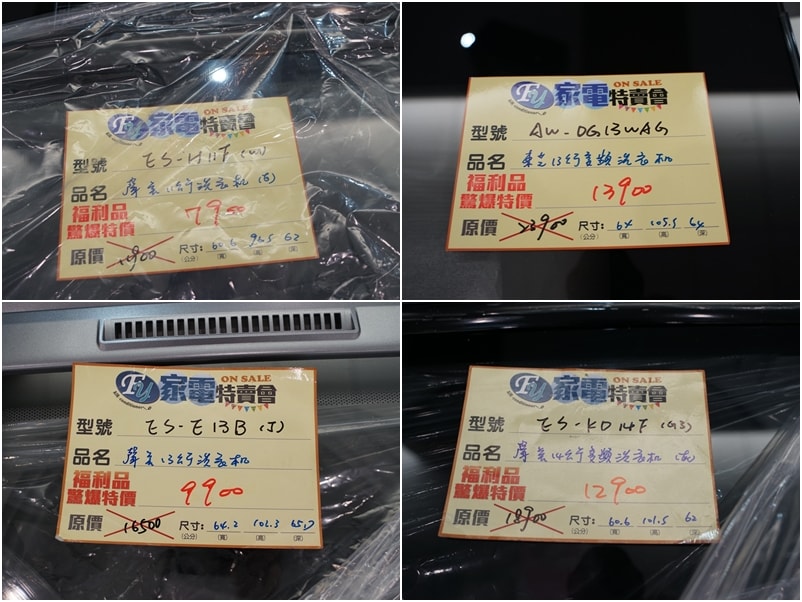 EY 家電特賣會 ON SALE
型號 ES-H11F (W1)
品名 聲寶11公斤洗衣机
福利品
驚爆特價 7900
原價 尺寸: 60.6 96.5 62
(公分) (寬) (高) (深)
EY 家電特賣會 ON SALE
型號 AW-DG13WAG
品名 東芝13公斤變頻洗衣机
福利品
驚爆特價 13900
原價 23900 尺寸: 64 105.5 64
(公分) (寬) (高) (深)
EY 家電特賣會 ON SALE
型號 ES-E13B (J)
品名 聲寶13公斤洗衣机
福利品
驚爆特價 9900
原價 16500 尺寸: 64.2 101.3 65.7
(公分) (寬) (高) (深)
EY 家電特賣會 ON SALE
型號 ES-KD14F (G3)
品名 聲寶14公斤變頻洗衣机
福利品
驚爆特價 12900
原價 18900 尺寸: 60.6 101.5 62
(公分) (寬) (高) (深)